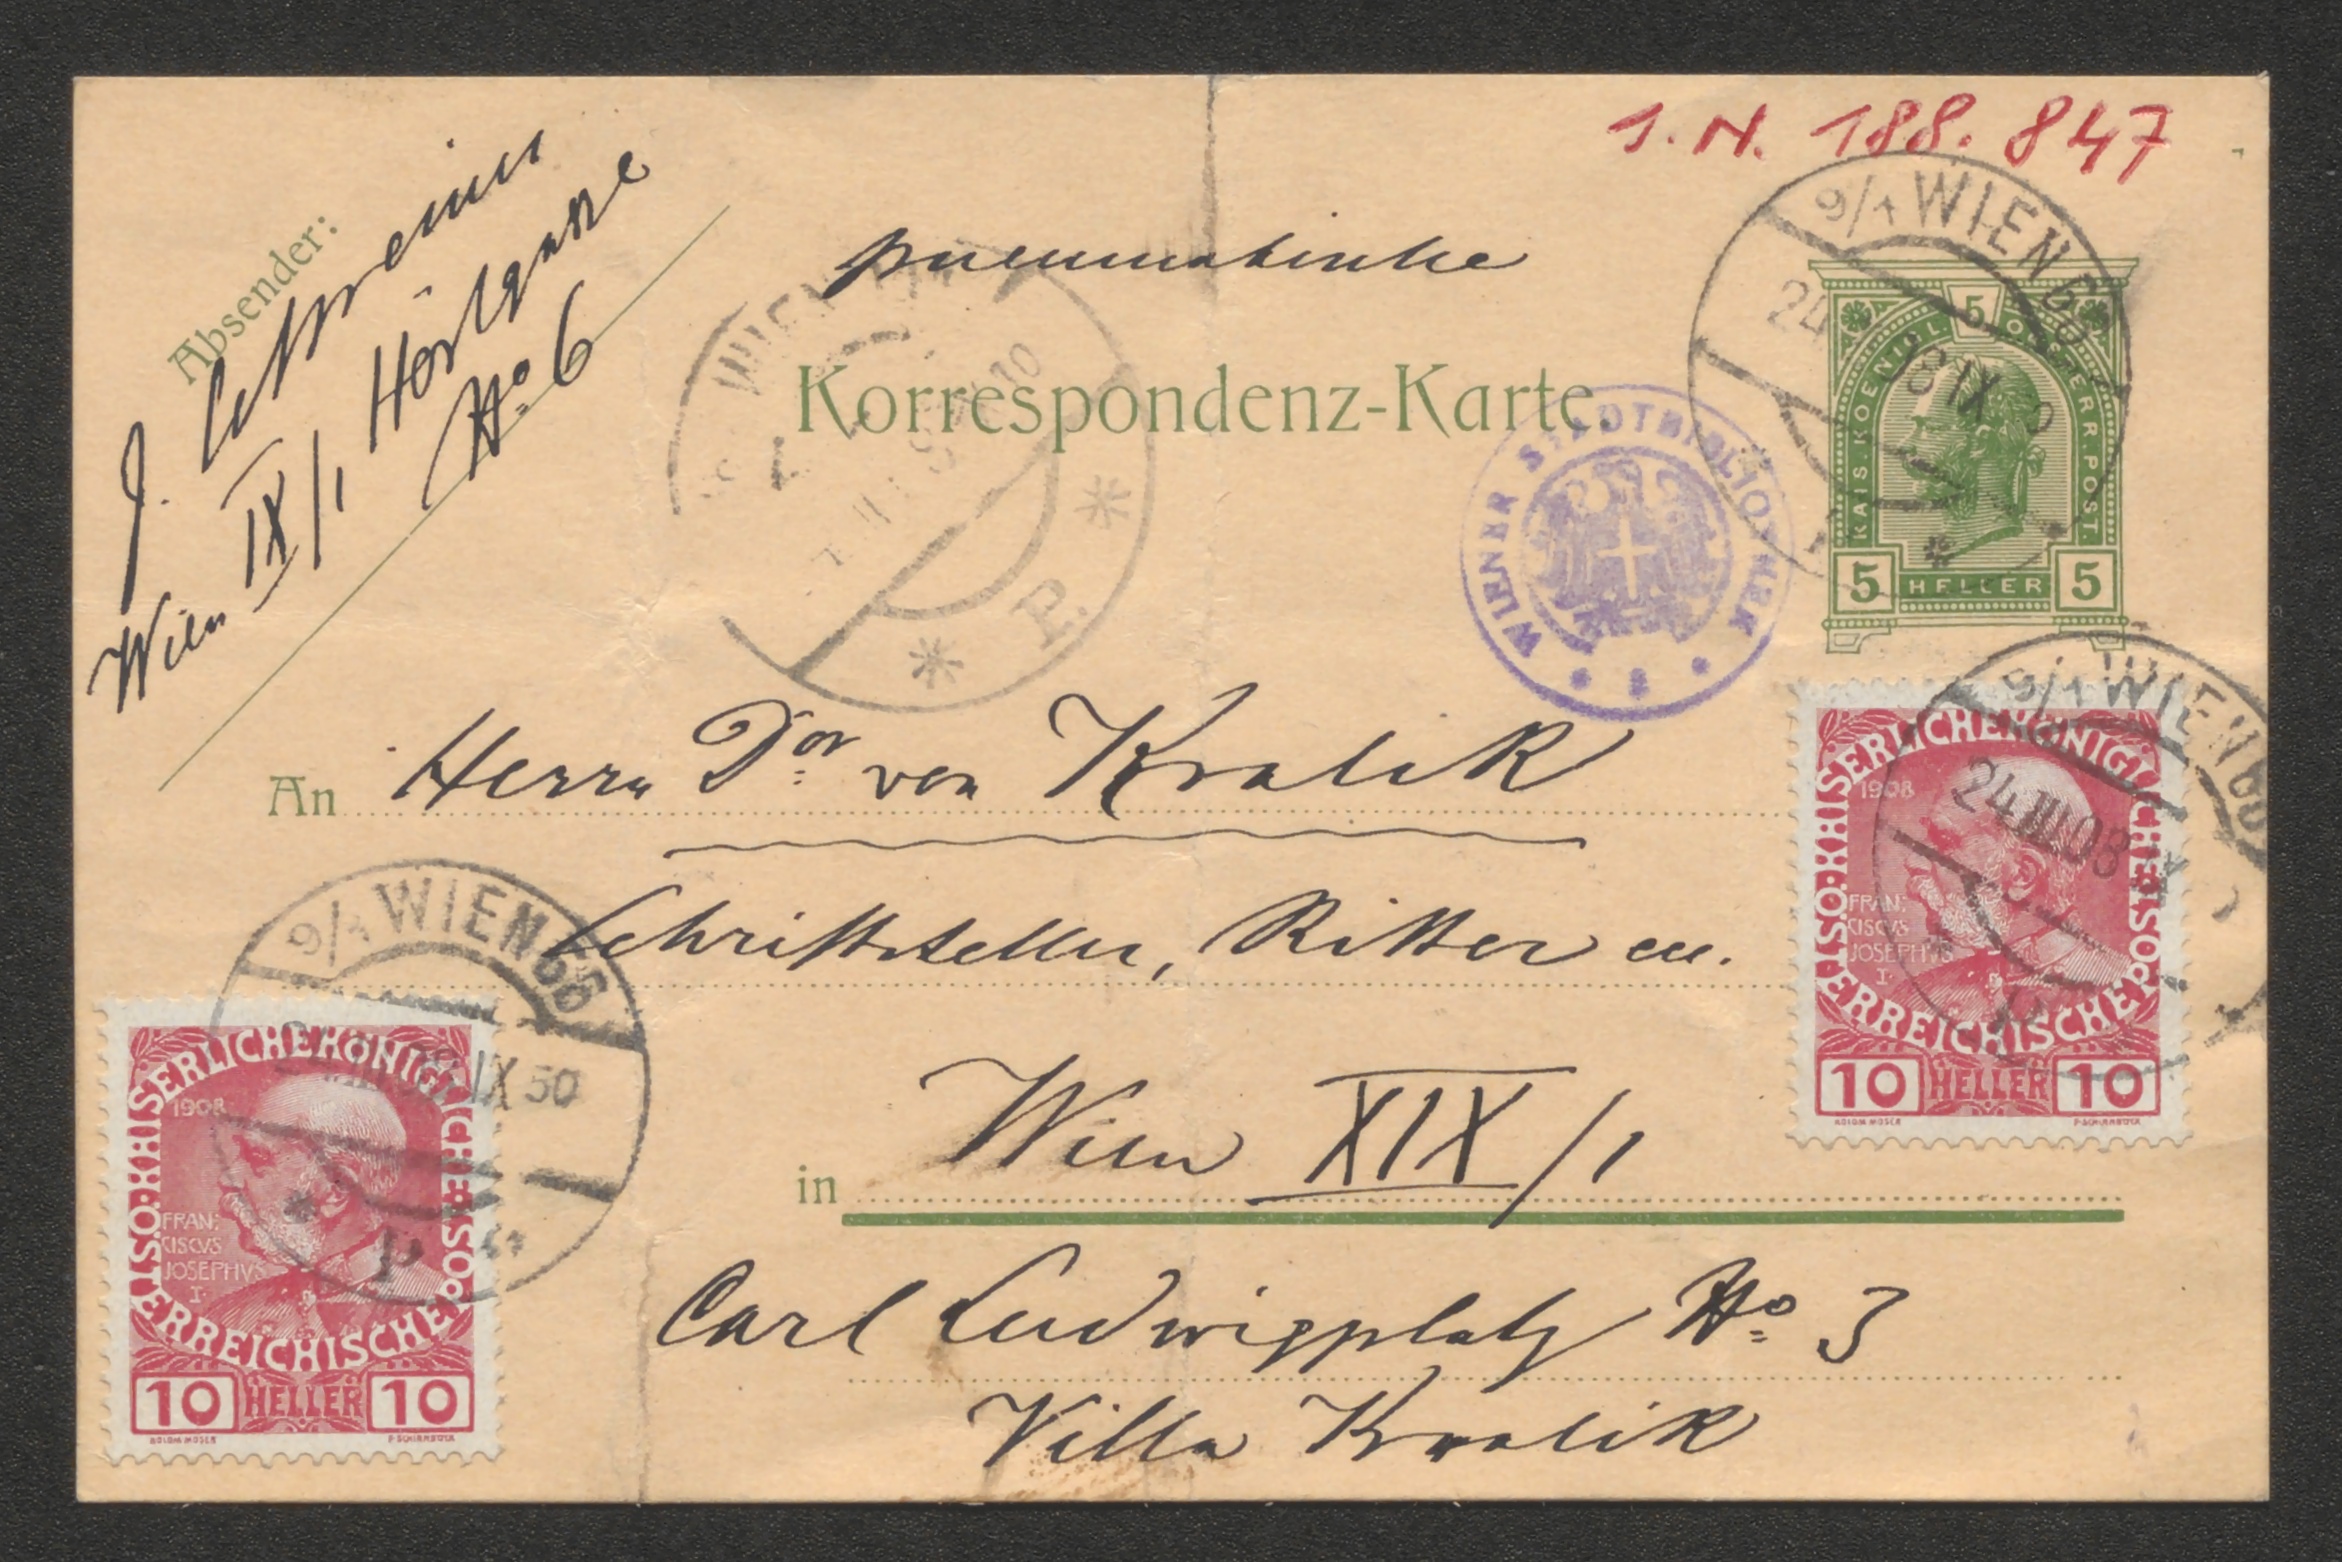 1.N. 188.847
Absender:
J.
Wien IX/1 Hörlgasse
No 6
pneumatische
Korrespondenz-Karte
WIENER STADTBIBLIOTHEK
9/1 WIEN 66
24 08 IX
KAIS. KOENIGL. OESTERR. POST.
5
5 HELLER 5
WIEN
P.
An Herrn Dor von Kralik
Schriftsteller, Ritter etc.
in Wien XIX/1
Carl Ludwigplatz No 3
Villa Kralik
9/1 WIEN 66
24.III.08
P
KAISERLICHE KÖNIGLICHE ÖSTERREICHISCHE POST
1908
FRAN:
CISCVS
JOSEPHVS
I.
10 HELLER 10
KOLOM. MOSER
F. SCHIRNBÖCK
9/1 WIEN 66
08 IX 50
P
KAISERLICHE KÖNIGLICHE ÖSTERREICHISCHE POST
1908
FRAN:
CISCVS
JOSEPHVS
I.
10 HELLER 10
KOLOM. MOSER
F. SCHIRNBÖCK